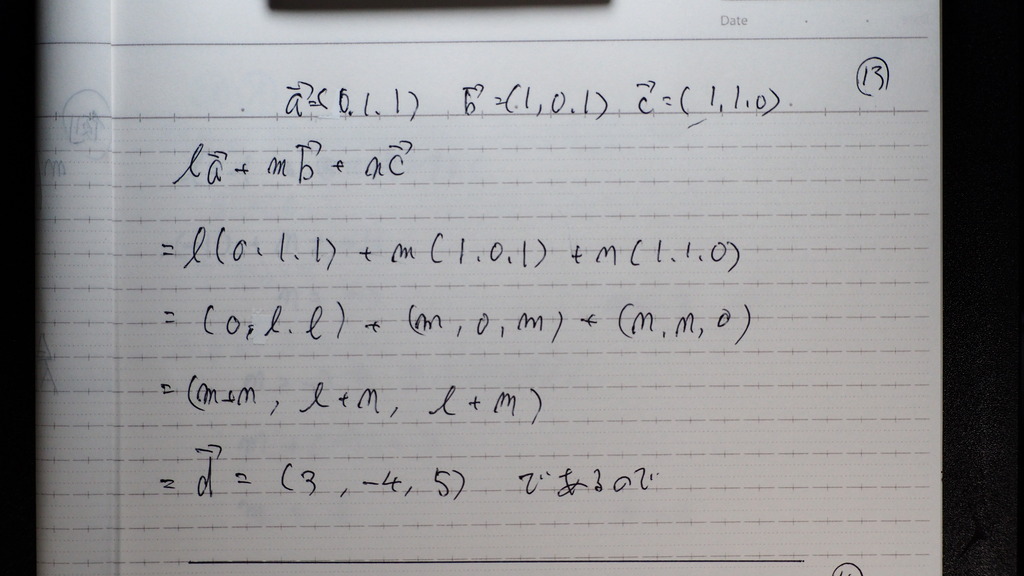 Date
⑬
a⃗=(0.1.1) b⃗=(1,0.1) c⃗=(1,1.0).
la⃗+mb⃗+nc⃗
=l(0.1.1)+m(1.0.1)+n(1.1.0)
=(0,l.l)+(m,0,m)+(n,n,0)
=(m+n, l+n, l+m)
=d⃗=(3,-4,5) であるので